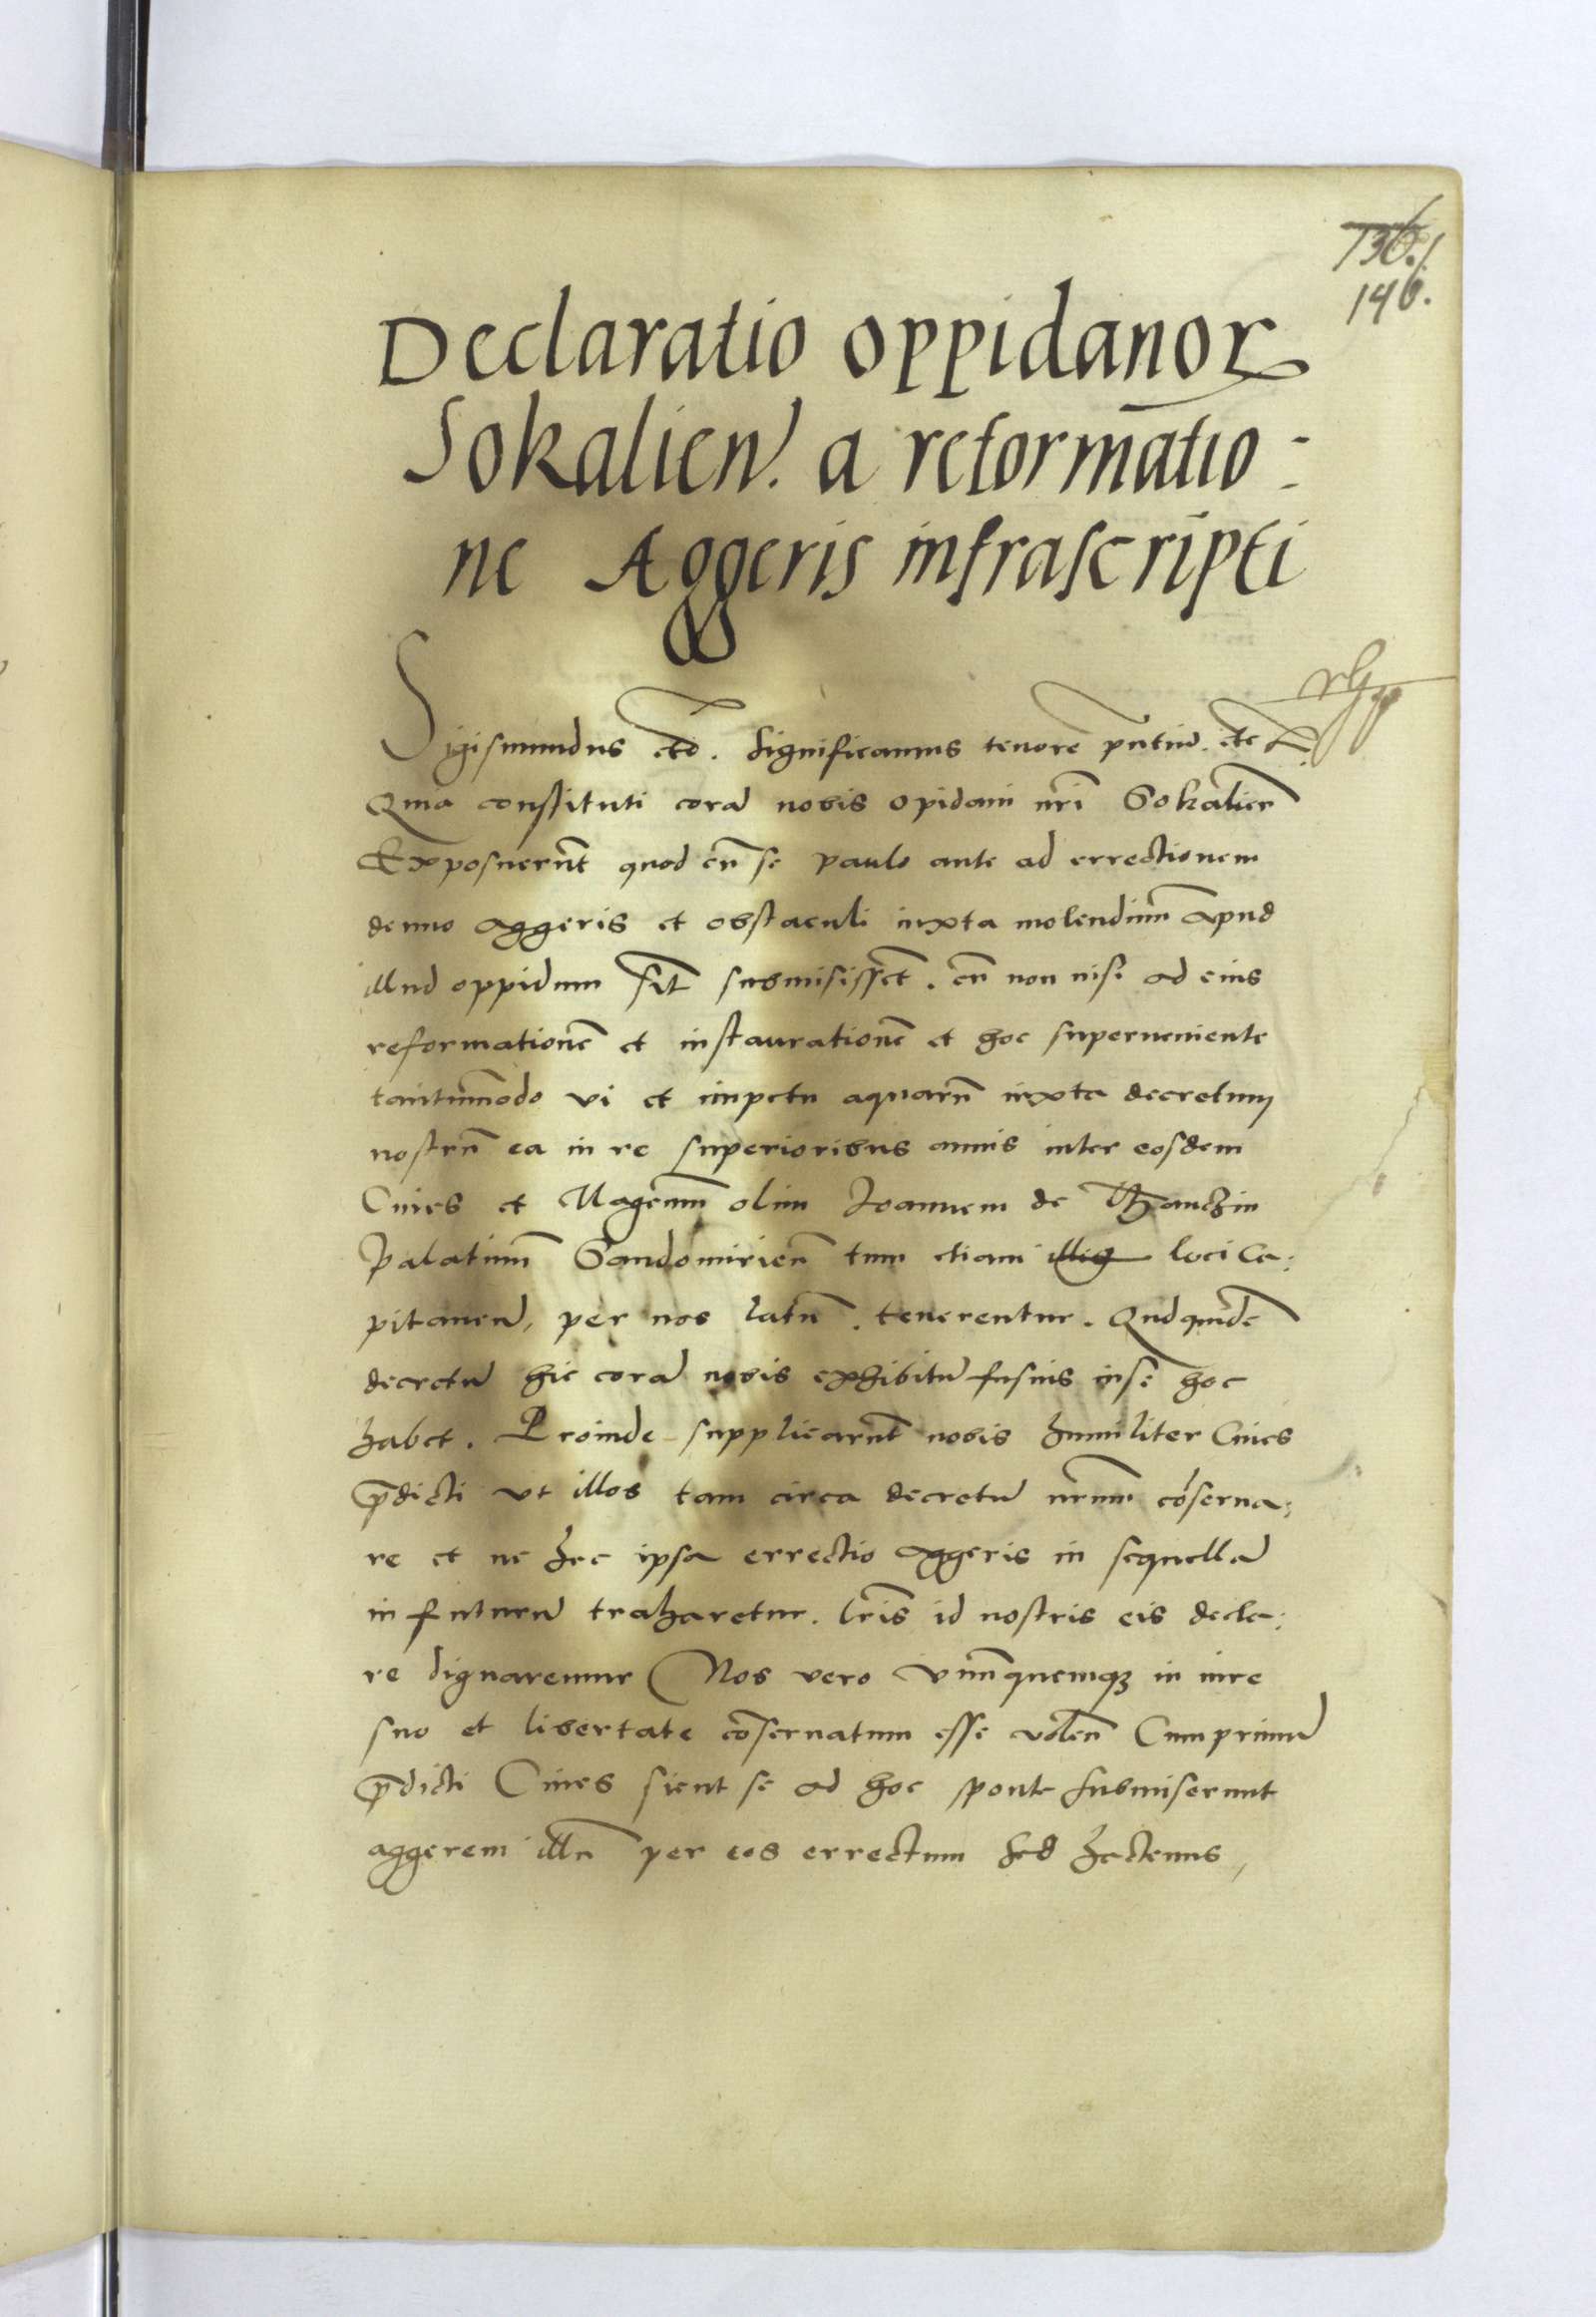 136.
146.
Declaratio oppidanoꝝ
Sokalien̄. a reformatio-
ne Aggeris infrascripti
Sigismundus etc. Significamus tenore pn̄tiū. etc
Quia constituti corā nobis opidani nr̄i Sokalien̄
Exposuerūt quod cū se paulo ante ad errectionem
denuo aggeris et obstaculi iuxta molendinū apud
illud oppidum submisissēt. cū non nisi ad eius
reformationē et instaurationē et hoc superueniente
tantūmodo vi et impetu aquarū iuxta decretum
nostrū ea in re superioribus annis inter eosdem
Ciues et Magcūm olim Joannem de Thanczin
Palatinū Sandomirien̄ tum etiam loci Ca:
pitaneū, per nos latū. tenerentur. Qudquidē
decretū hic corā nobis exhibitū fusius in se hoc
habet. Proinde supplicarūt nobis humiliter Ciues
p̄dicti vt illos tam circa decretū nrūm cōserua:
re et ne hec ipsa errectio aggeris in sequellā
in futurū traharetur. lr̄is id nostris eis decla:
re dignaremur Nos vero vnūquemqꝫ in iure
suo et libertate cōseruatum esse volen̄ Cumprimū
p̄dicti Ciues sicut se ad hoc sponte submiserunt
aggerem illū per eos errectum sed hactenus,